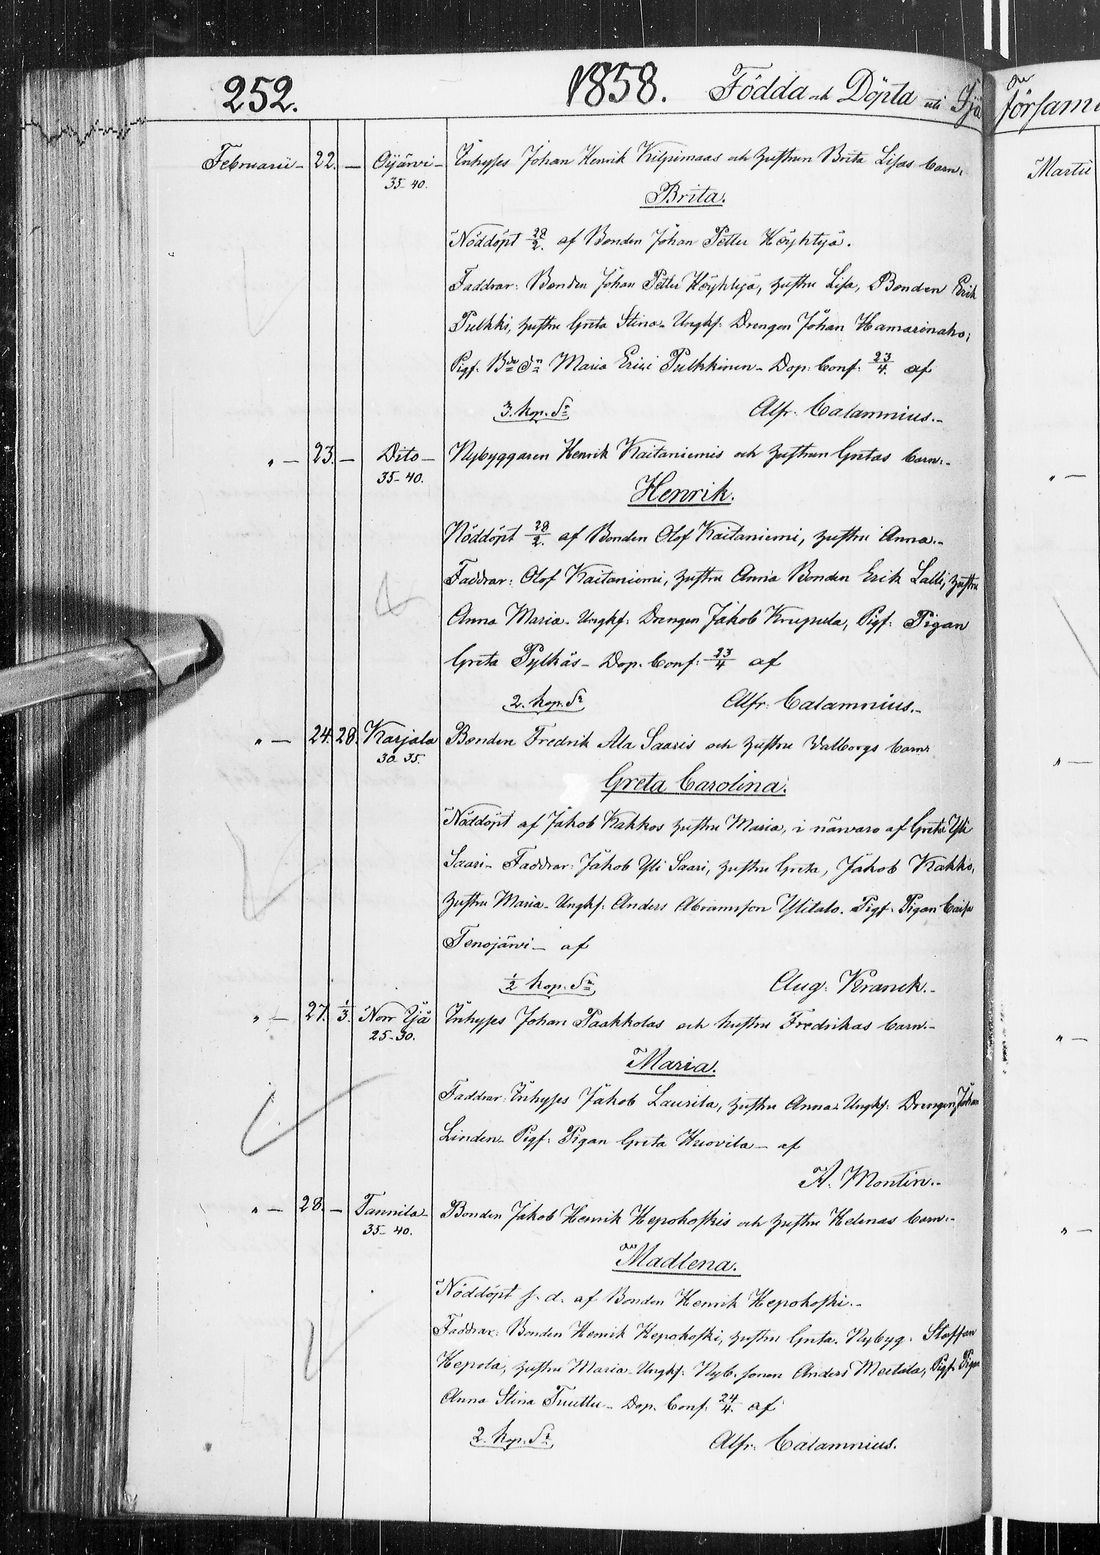 252. 1858. Födda och Döpta uti Ijå
Februarii — 22. — Oijärvi — Inhyses Johan Henrik Kilpimaas och hustrun Brita Lisas barn.
35-40.
Brita.
Nöddöpt 28/2. af Bonden Johan Petter Höyhtyä.
Faddrar: Bonden Johan Petter Höyhtyä, hustru Lisa, Bonden Erik
Pulkki, hustru Greta Stina. Ungkf. Drengen Johan Hamarinaho,
Pigf. Maria Pulkkinen. Dop. Conf. 23/4. af
3. kop. Sr Alfr. Calamnius.
" — 23. — Dito — Nybyggaren Henrik Kaitaniemis och hustrun Gretas barn.
35-40.
Henrik.
Nöddöpt 28/2. af Bonden Olof Kaitaniemi, hustru Anna.
Faddrar: Olof Kaitaniemi, hustru Anna Bonden Erik Lalli, hustru
Anna Maria. Ungkf. Drengen Jakob Krupula, Pigf. Pigan
Greta Pylkäs. Dop. Conf. 23/4 af
2. kop. Sr Alfr. Calamnius.
" — 24. 28. Karjala Bonden Fredrik Ala Saaris och hustru Valborgs barn
30-35.
Greta Carolina.
Nöddöpt af Jakob Kakkos hustru Maria, i närvaro af Greta Yli
Saari. Faddrar: Jakob Yli Saari, hustru Greta, Jakob Kakko,
hustru Maria. Ungkf. Anders Abramsson Ylitalo. Pigf. Pigan Caisa
Tenojärvi — af
1/2 kop. Sr Aug. Kranck.
" — 27. 1/3. Norr Ijå Inhyses Johan Paakkolas och hustru Fredrikas barn.
25-30.
Maria.
Faddrar: Inhyses Jakob Laurila, hustru Anna. Ungkf. Drengen Johan
Linden. Pigf. Pigan Greta Huovila — af
A. Montin.
" — 28. — Tannila Bonden Jakob Henrik Hepokoskis och hustru Helenas barn.
35-40.
Madlena.
Nöddöpt s. d. af Bonden Henrik Hepokoski.
Faddrar: Bonden Henrik Hepokoski, hustru Greta. Nybyg. Staffan
Hepola, hustru Maria. Ungkf. Nyb. sonen Anders Mertala, Pigf. Pigan
Anna Stina Tuuttu. Dop. Conf. 24/4. af
2. kop. Sr Alfr. Calamnius.
Församl
Martii